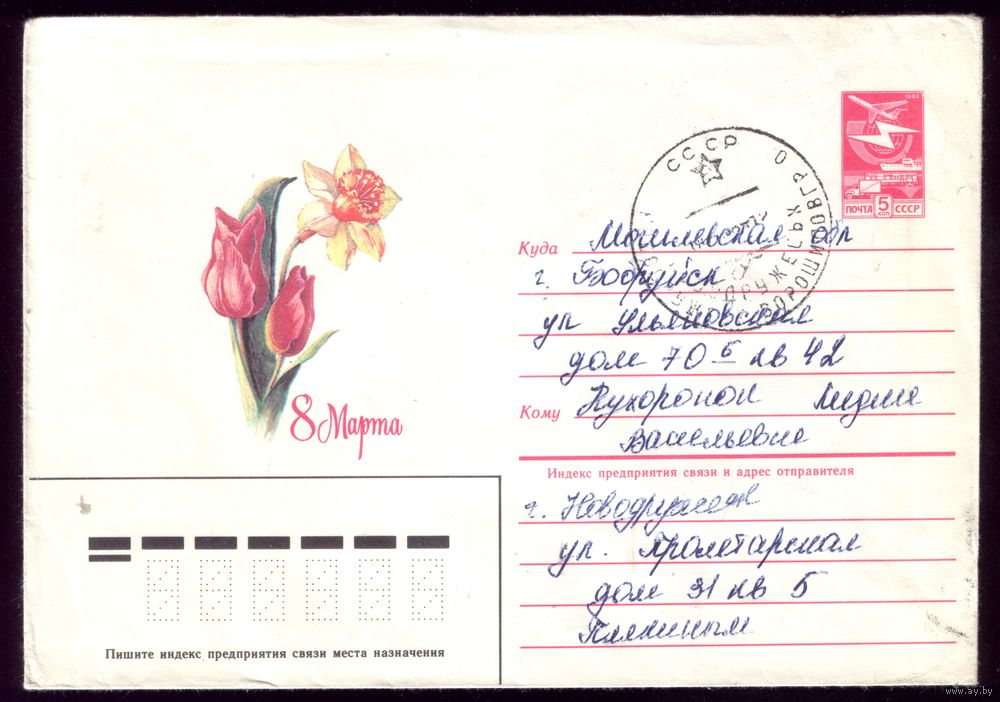 1982
ПОЧТА 5 КОП СССР
СССР
НОВОДРУЖЕСЬК ВОРОШИЛОВГР. О
Куда Могилевская обр
г. Бобруйск
ул Ульяновская
дом 70 б кв 42
Кому Кухороной Лидие
Васильевне
8 Марта
Индекс предприятия связи и адрес отправителя
г. Новодружеск
ул. Пролетарская
дом 31 кв 5
Плехиным
Пишите индекс предприятия связи места назначения
www.ay.by